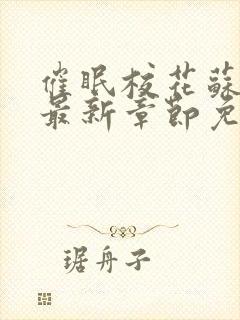 催眠校花蘇
最新章節免
琚舟子